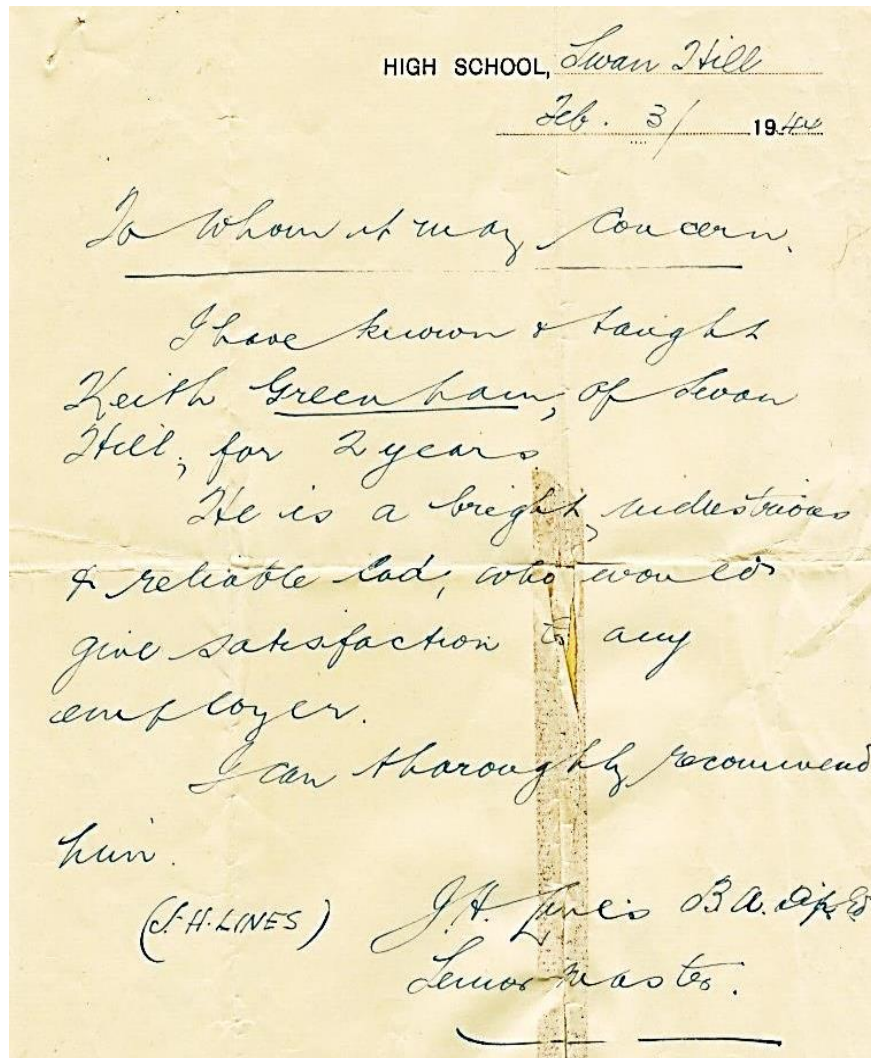 HIGH SCHOOL, Swan Hill
Feb. 3/ 1944
To whom it may concern.
I have known & taught
Keith Greenham, of Swan
Hill, for 2 years
He is a bright, industrious
& reliable lad, who would
give satisfaction to any
employer.
I can thoroughly recommend
him.
(J.H. LINES) J.H. Lines B.A. Dip Ed
Senior Master.